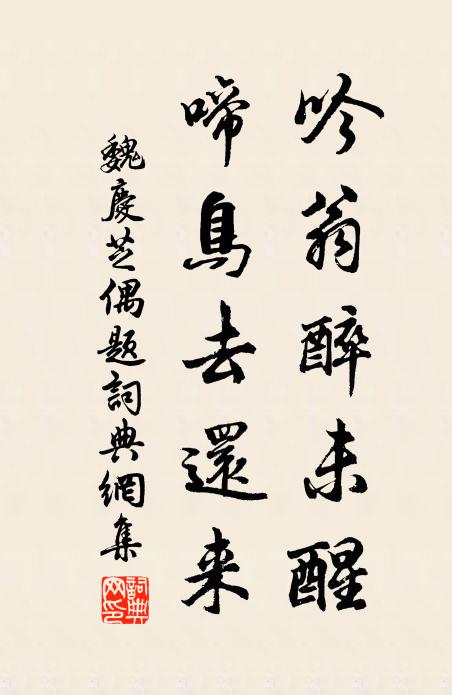 吟翁醉未醒
啼鳥去還来
魏慶芝偶題詞典網集
詞典網印